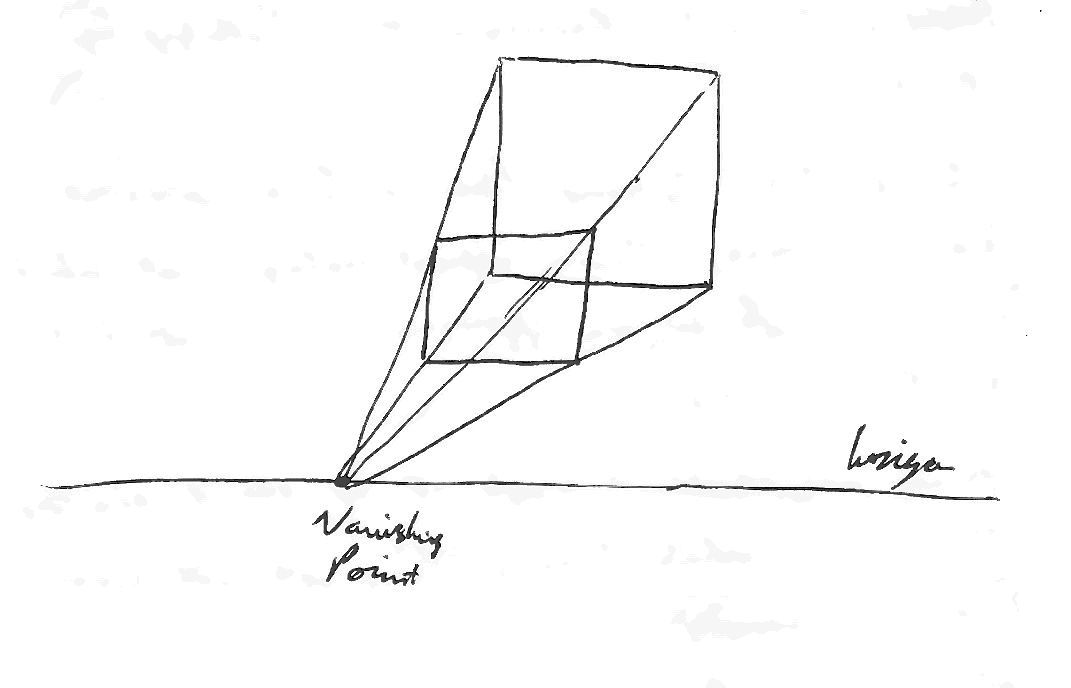 horizon
Vanishing
Point